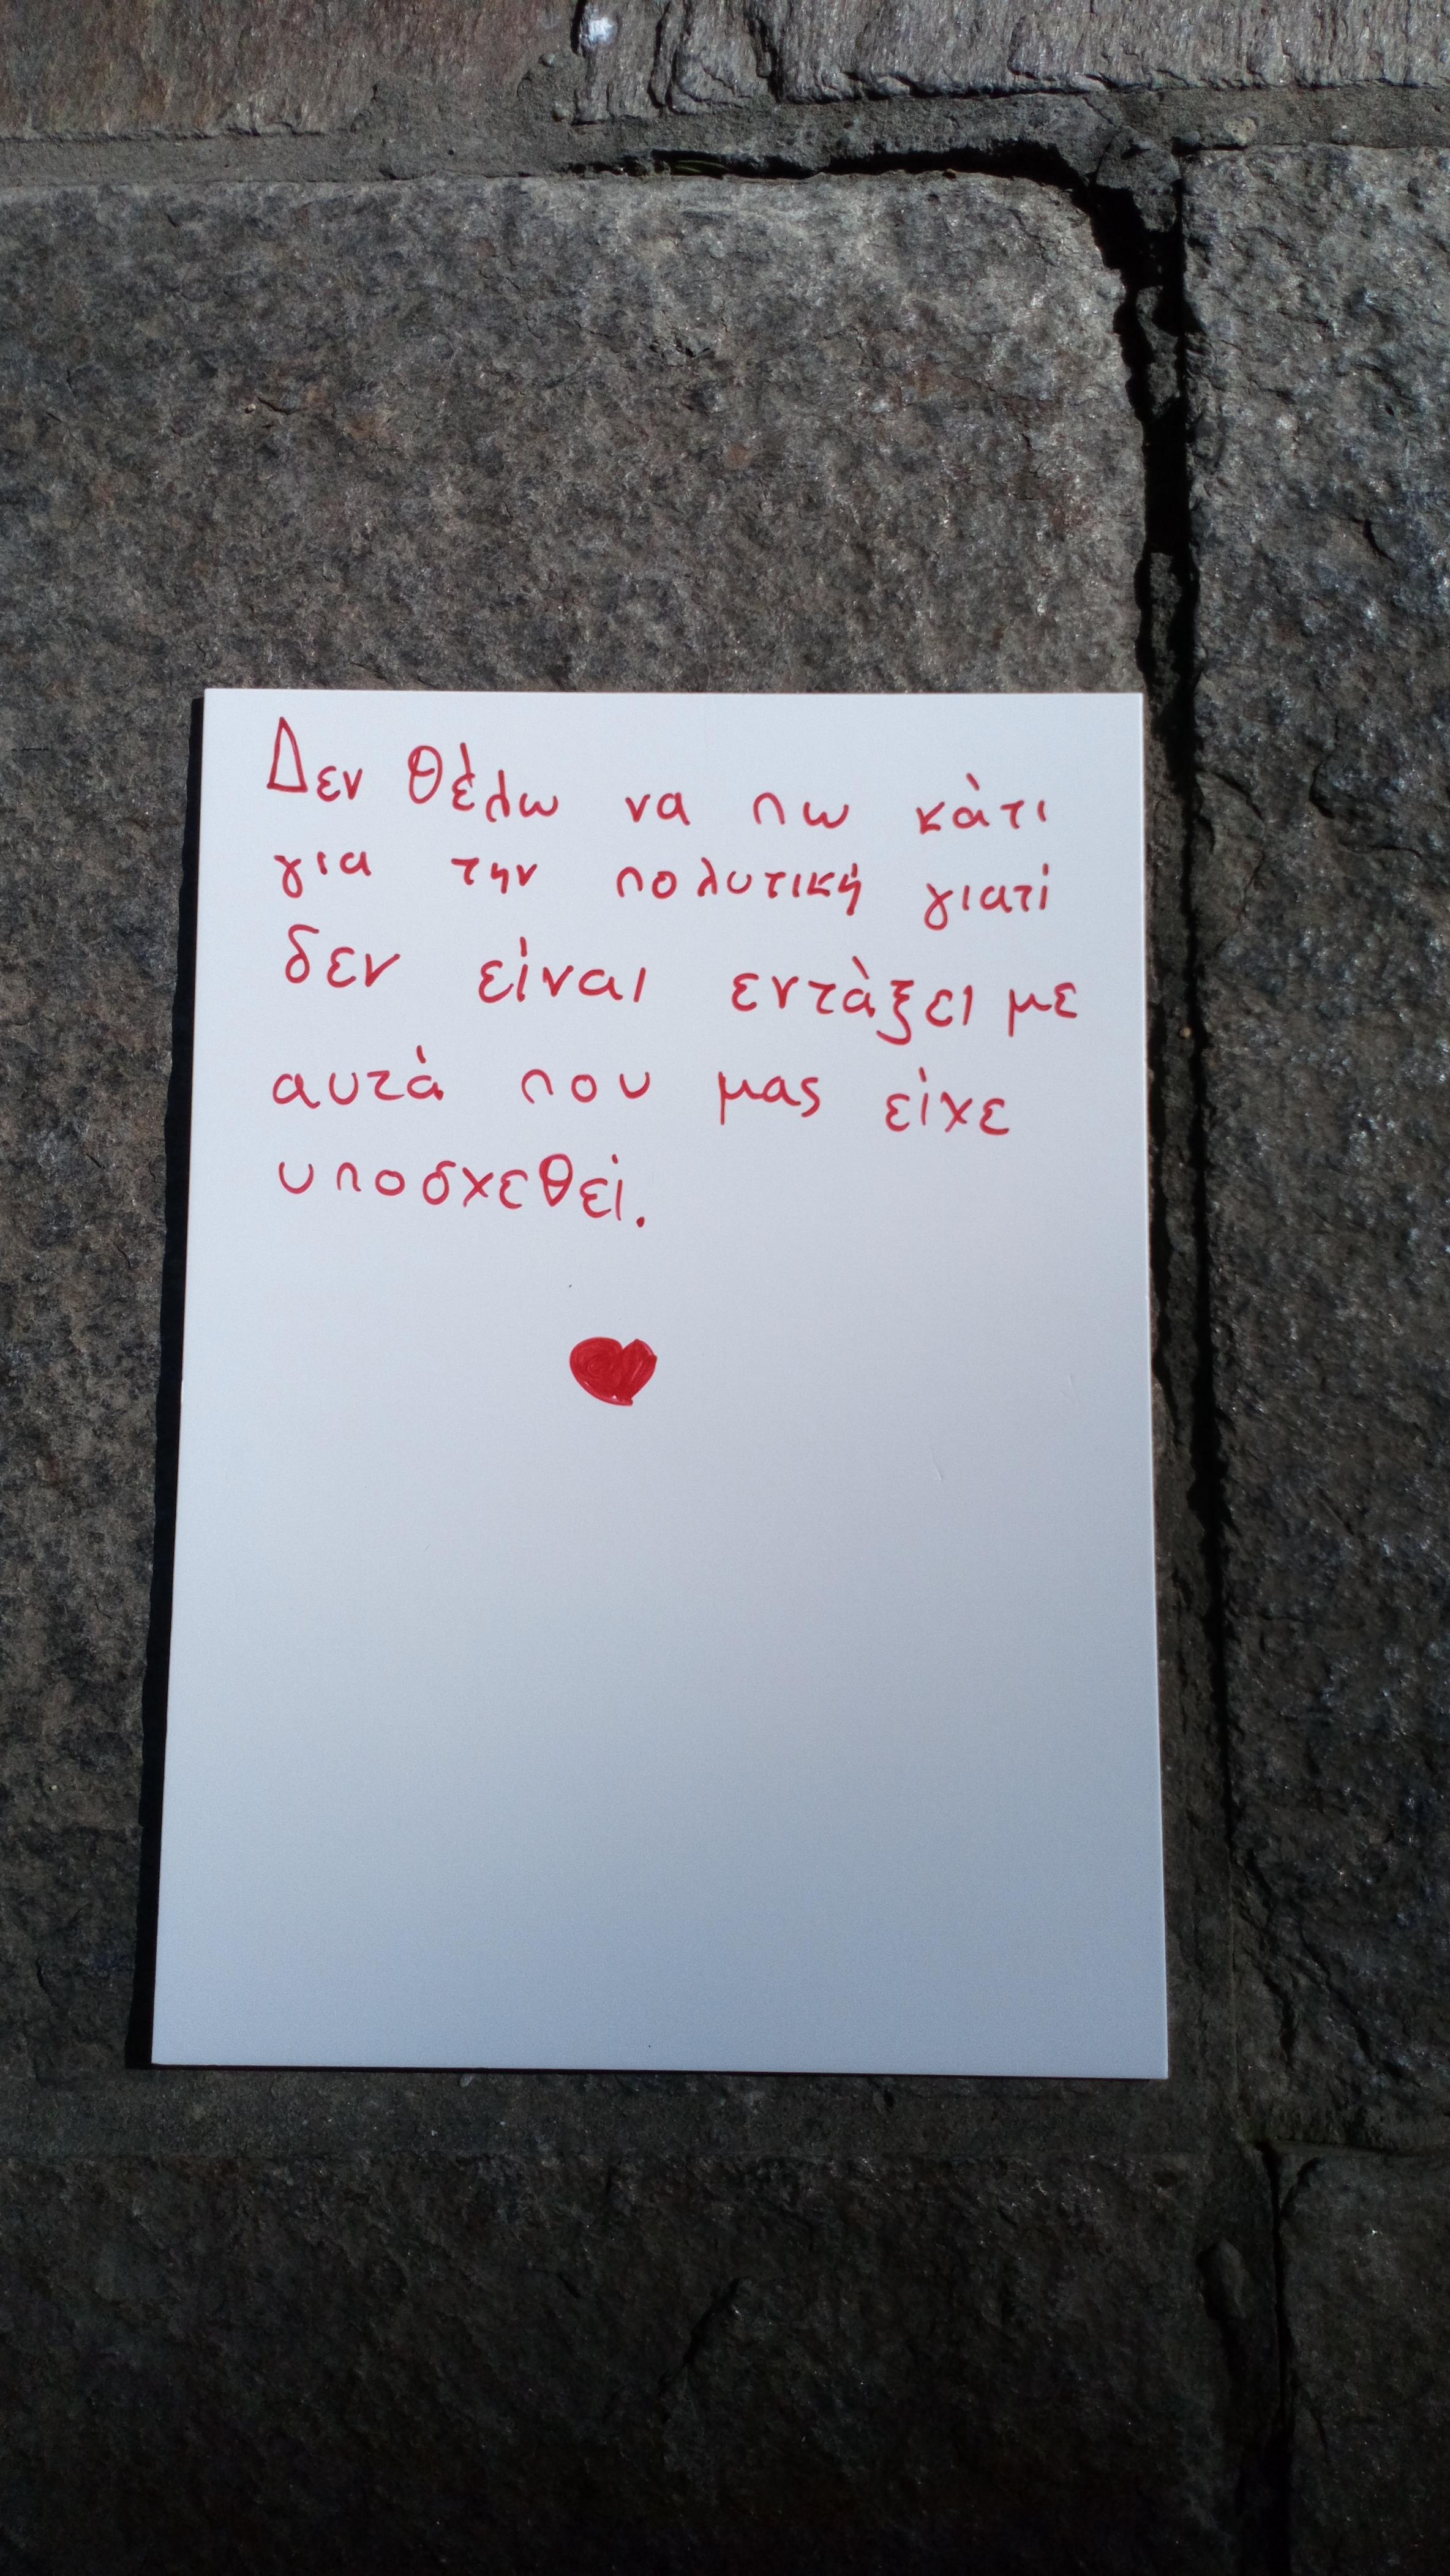 Δεν θέλω να πω κάτι
για την πολυτική γιατί
δεν είναι εντάξει με
αυτά που μας είχε
υποσχεθεί.